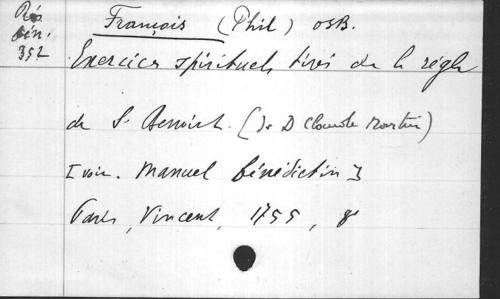 Rés
bén.
352
François (Phil) OSB.
Exercices spirituels tirés de la règle
de S. Benoist. (de D Claude Martin)
[voir. Manuel bénédictin]
Paris, Vincent, 1755, 8°